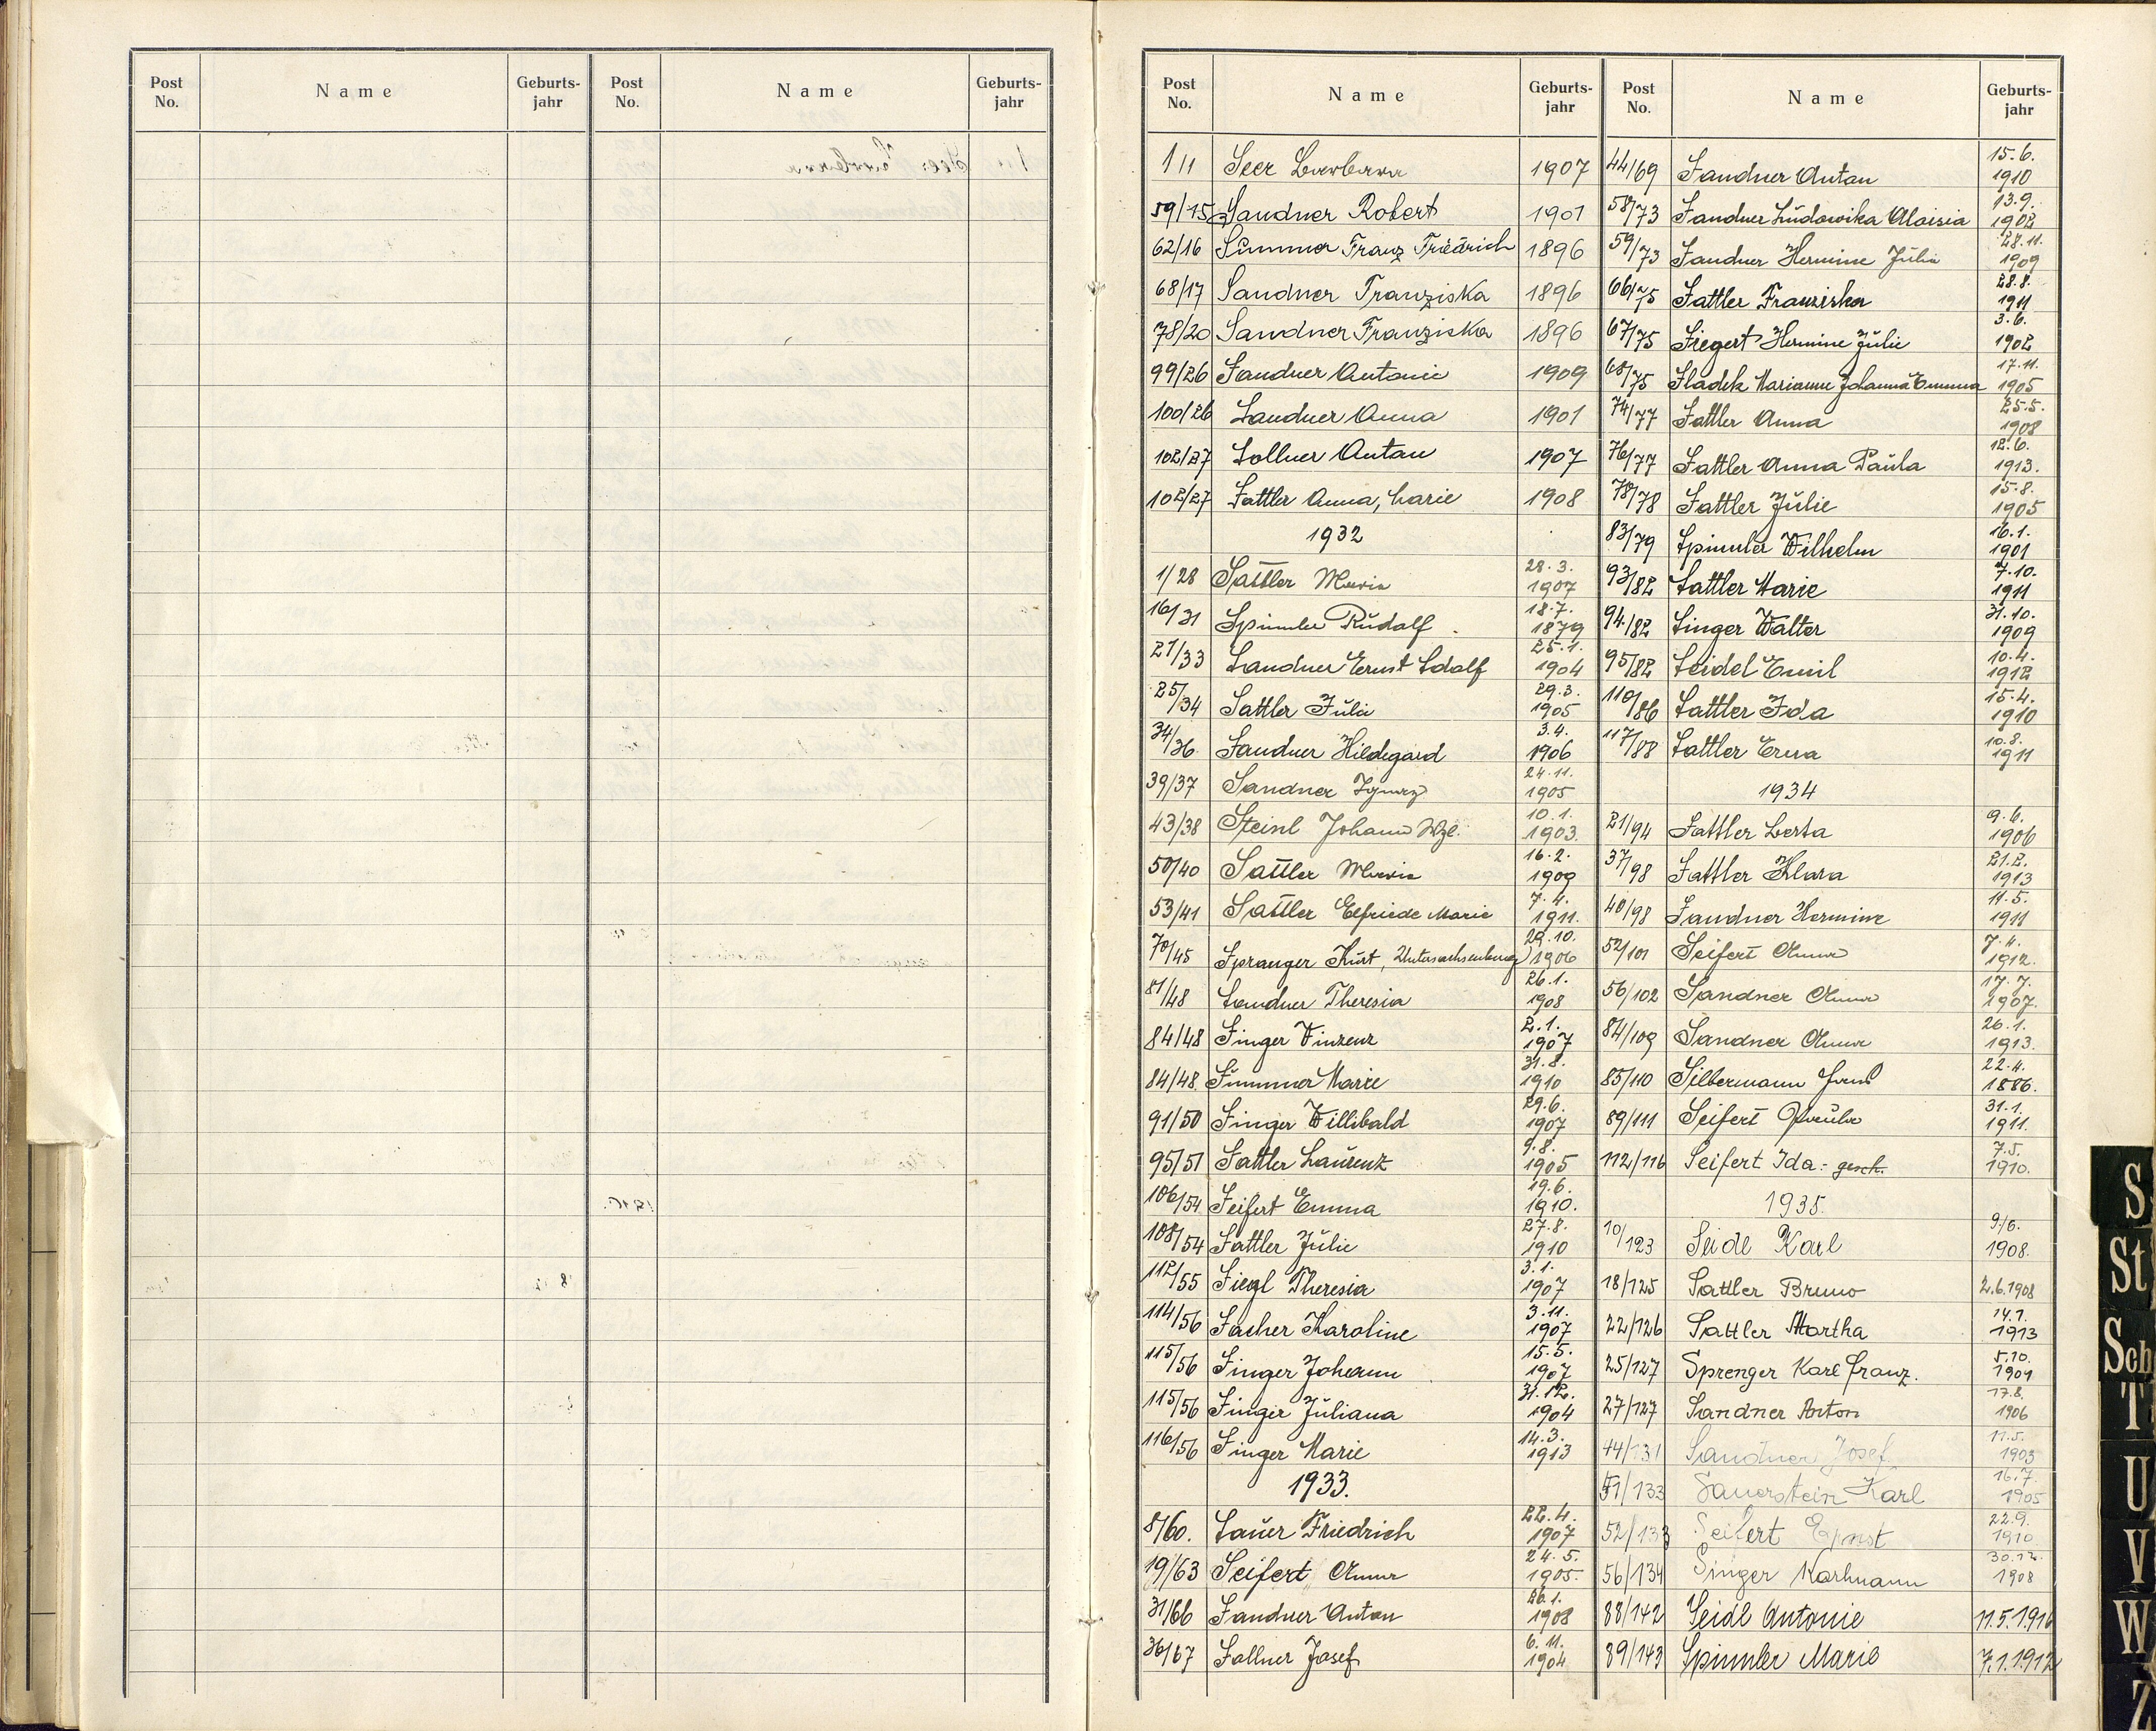 Post No. Name Geburtsjahr Post No. Name Geburtsjahr
Post No. Name Geburtsjahr
1/1 Seer Barbara 1907
59/15 Sandner Robert 1901
62/16 Summer Franz Friedrich 1896
68/17 Sandner Franziska 1896
78/20 Sandner Franziska 1896
99/26 Sandner Antonie 1909
100/26 Sandner Anna 1901
102/27 Sollner Anton 1907
102/27 Sattler Anna, Marie 1908
1932
1/28 Sattler Maria 28.3. 1907
16/31 Spinnler Rudolf 18.7. 1879
21/33 Sandner Ernst Adolf 25.1. 1904
25/34 Sattler Julie 29.3. 1905
34/36 Sandner Hildegard 3.4. 1906
39/37 Sandner Ignaz 24.11. 1905
43/38 Steinl Johann Wzl. 10.1. 1903.
50/40 Sattler Maria 16.2. 1909
53/41 Sattler Elfriede Marie 7.4. 1911.
70/45 Spranger Kurt, Untersachsenberg 29.10. 1906
81/48 Sandner Theresia 26.1. 1908
84/48 Singer Vinzenz 2.1. 1907
84/48 Summer Marie 31.8. 1910
91/50 Singer Willibald 29.6. 1907
95/51 Sattler Laurenz 9.8. 1905
106/54 Seifert Emma 19.6. 1910.
108/54 Sattler Julie 27.8. 1910
112/55 Siegl Theresia 3.1. 1907
114/56 Sacher Karoline 3.11. 1907
115/56 Singer Johann 15.5. 1907
115/56 Singer Juliana 31.12. 1904
116/56 Singer Marie 14.3. 1913
1933.
8/60. Sauer Friedrich 22.4. 1907
19/63 Seifert Anna 24.5. 1905.
31/66 Sandner Anton 26.1. 1908
36/67 Sollner Josef 6.11. 1904
Post No. Name Geburtsjahr
44/69 Sandner Anton 15.6. 1910
58/73 Sandner Ludowika Aloisia 13.9. 1902
59/73 Sandner Hermine Julie 28.11. 1909
66/75 Sattler Franziska 28.8. 1911
67/75 Siegert Hermine Julie 3.6. 1902
68/75 Sladek Marianne Johanna Emma 17.11. 1905
74/77 Sattler Anna 25.5. 1908
76/77 Sattler Anna Paula 12.6. 1913.
78/78 Sattler Julie 15.8. 1905
83/79 Spinnler Wilhelm 16.1. 1901
93/82 Sattler Marie 7.10. 1911
94/82 Singer Walter 31.10. 1909
95/82 Seidel Emil 10.4. 1912
110/86 Sattler Ida 15.4. 1910
117/88 Sattler Erna 10.8. 1911
1934
21/94 Sattler Berta 9.6. 1906
37/98 Sattler Klara 21.2. 1913
40/98 Sandner Hermine 11.5. 1911
52/101 Seifert Anna 7.4. 1912.
56/102 Sandner Anna 17.7. 1907.
84/109 Sandner Anna 26.1. 1913.
85/110 Silbermann 22.4. 1886.
89/111 Seifert Paula 31.1. 1911.
112/116 Seifert Ida:- gesch. 7.5. 1910.
1935.
10/123 Seidl Karl 9./6. 1908.
18/125 Sattler Bruno 2.6.1908
22/126 Sattler Martha 14.1. 1913
25/127 Sprenger Karl Franz. 5.10. 1901
27/127 Sandner Anton 17.8. 1906
44/131 Sandner Josef 11.5. 1903
51/133 Sauerstein Karl 16.7. 1905
52/133 Seifert Ernst 22.9. 1910
56/134 Singer Karlmann 30.12. 1908
88/142 Seidl Antonie 11.5.1916
89/143 Spinnler Marie 7.1.1912
S
St
Sch
T
U
V
W
Z